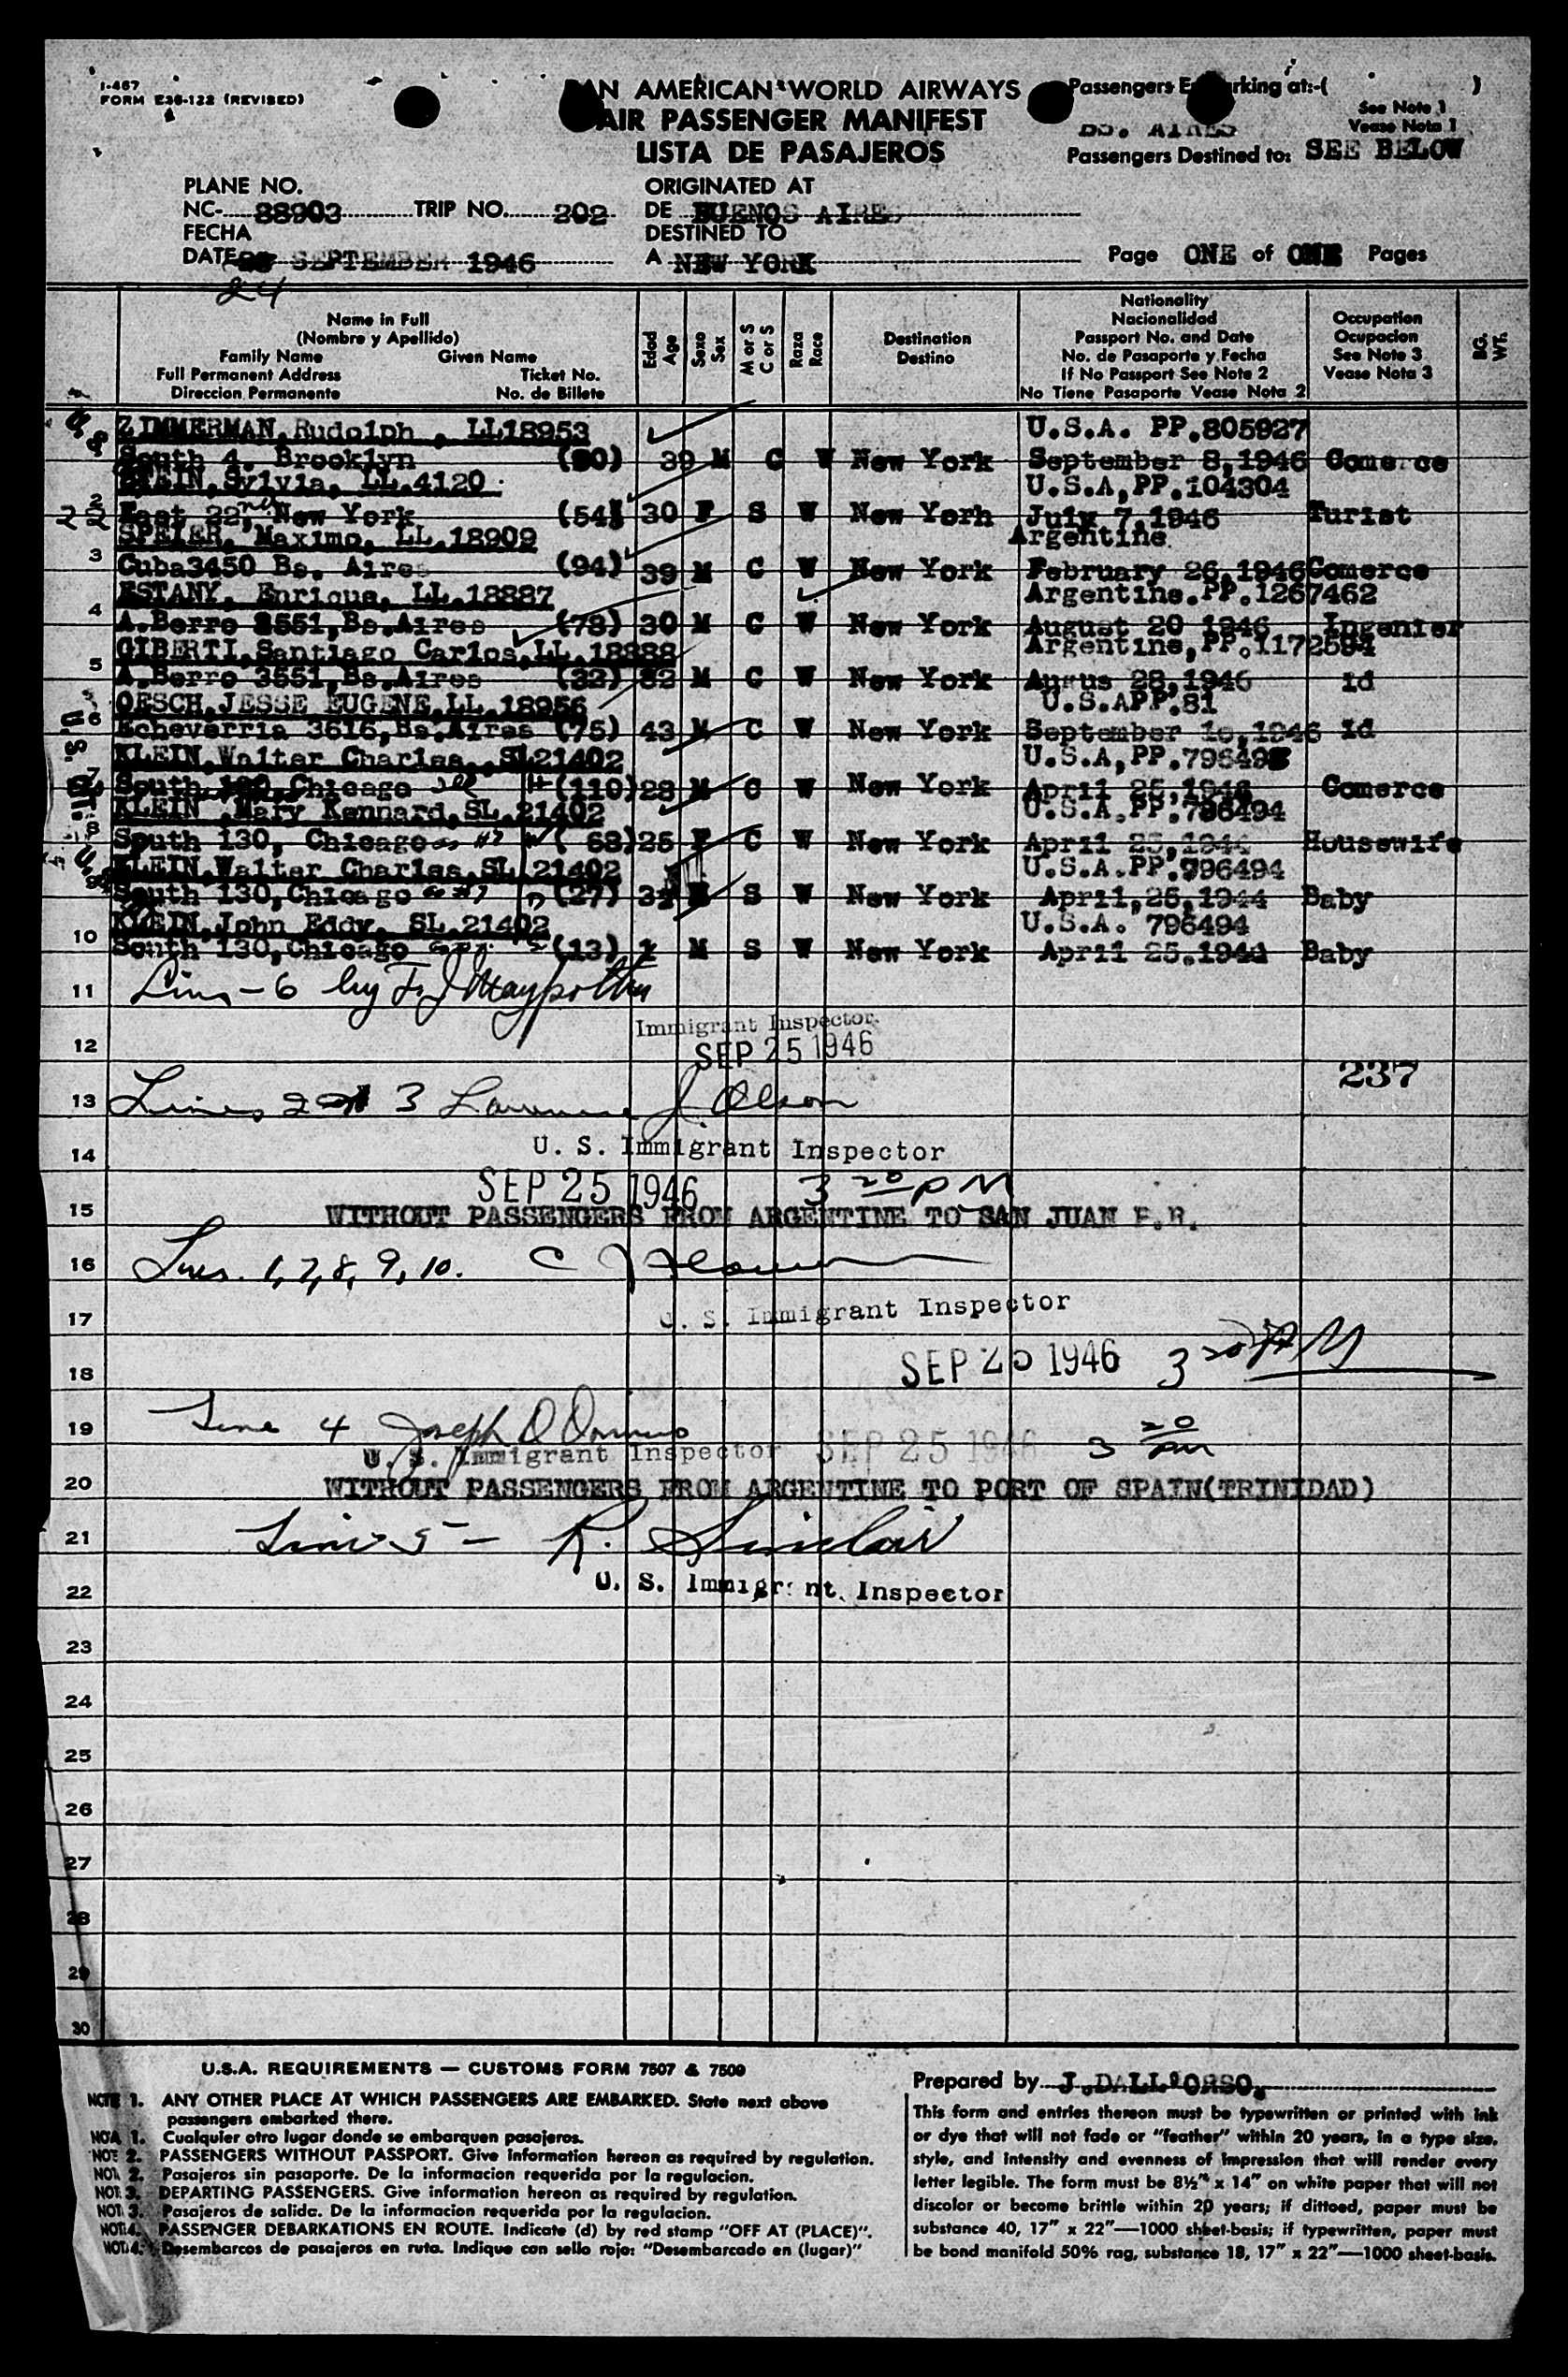 I-467
FORM E36-122 (REVISED)
PAN AMERICAN WORLD AIRWAYS
AIR PASSENGER MANIFEST
LISTA DE PASAJEROS
Passengers Embarking at:-( )
See Note 1
Vease Nota 1
BS. AIRES
Passengers Destined to: SEE BELOW
PLANE NO.
NC- 88903 TRIP NO. 202
FECHA
DATE SEPTEMBER 1946
24
ORIGINATED AT
DE BUENOS AIRES
DESTINED TO
A NEW YORK
Page ONE of ONE Pages
Name in Full
(Nombre y Apellido)
Family Name Given Name
Full Permanent Address Ticket No.
Direccion Permanente No. de Billete
Edad Age
Sexo Sex
M or S C or S
Raza Race
Destination
Destino
Nationality
Nacionalidad
Passport No. and Date
No. de Pasaporte y Fecha
If No Passport See Note 2
No Tiene Pasaporte Vease Nota 2
Occupation
Ocupacion
See Note 3
Vease Nota 3
BG. WT.
ZIMMERMAN, Rudolph , LL18953 U.S.A. PP.805927
South 4. Brooklyn (90) 39 M C W New York September 8,1946 Comerce
STEIN, Sylvia, LL.4120 U.S.A,PP.104304
2 East 22, nd New York (54) 30 F S W New Yorh July 7,1946 Turist
SPEIER, Maximo, LL.18909 Argentine
3 Cuba3450 Bs. Aires (94) 39 M C W New York February 26,1946 Comerce
ESTANY, Enrique, LL.18887 Argentine.PP.1267462
4 A.Berro 3551,Bs.Aires (78) 30 M C W New York August 20 1946 Ingenier
GIBERTI,Santiago Carlos,LL.18888 Argentine,PP.1172594
5 A.Berro 3551,Bs.Aires (32) 32 M C W New York Augus 28,1946 id
OESCH,JESSE EUGENE,LL.18956 U.S.APP.81
6 Echeverria 3616,Bs.Aires (75) 43 M C W New York September 10,1946 id
KLEIN,Walter Charles,,SL21402 U.S.A,PP.796494
7 South 130,Chicago Ill (110) 28 M C W New York April 25,1946 Comerce
KLEIN ,Mary Kennard,SL.21402 U.S.A.PP.796494
8 South 130, Chicago #7 ( 68) 25 F C W New York April 25,1944 Housewife
KLEIN,Walter Charles,SL 21402 U.S.A.PP.796494
9 South 130,Chicago #7 (27) S W New York April,25,1944 Baby
KLEIN,John Eddy, SL.21402 U.S.A. 796494
10 South 130,Chicago (13) 1 M S W New York April 25.1944 Baby
11 Lines - 6 by
Immigrant Inspector
12 SEP 25 1946
237
13 Lines 2 and 3 Lawrence J. Olson
14 U. S. Immigrant Inspector
SEP 25 1946 3 20 PM
15 WITHOUT PASSENGERS FROM ARGENTINE TO SAN JUAN P.R.
16 Lines. 1, 7, 8, 9, 10.
17 U. S. Immigrant Inspector
18 SEP 25 1946 3 20 PM
19 Line 4 Joseph
U. S. Immigrant Inspector SEP 25 1946 3 20 PM
20 WITHOUT PASSENGERS FROM ARGENTINE TO PORT OF SPAIN(TRINIDAD)
21 Line 5 - R. Sinclair
22 U. S. Immigrant Inspector
23
24
25
26
27
28
29
30
U.S.A. REQUIREMENTS — CUSTOMS FORM 7507 & 7509
NOTE 1. ANY OTHER PLACE AT WHICH PASSENGERS ARE EMBARKED. State next above
passengers embarked there.
NOTA 1. Cualquier otro lugar donde se embarquen pasajeros.
NOTE 2. PASSENGERS WITHOUT PASSPORT. Give information hereon as required by regulation.
NOTA 2. Pasajeros sin pasaporte. De la informacion requerida por la regulacion.
NOTE 3. DEPARTING PASSENGERS. Give information hereon as required by regulation.
NOTA 3. Pasajeros de salida. De la informacion requerida por la regulacion.
NOTE 4. PASSENGER DEBARKATIONS EN ROUTE. Indicate (d) by red stamp "OFF AT (PLACE)".
NOTA 4. Desembarcos de pasajeros en ruta. Indique con sello rojo: "Desembarcado en (lugar)"
Prepared by J.DALL'ORSO.
This form and entries thereon must be typewritten or printed with ink
or dye that will not fade or "feather" within 20 years, in a type size,
style, and intensity and evenness of impression that will render every
letter legible. The form must be 8½" x 14" on white paper that will not
discolor or become brittle within 20 years; if dittoed, paper must be
substance 40, 17" x 22"—1000 sheet-basis; if typewritten, paper must
be bond manifold 50% rag, substance 18, 17" x 22"—1000 sheet-basis.